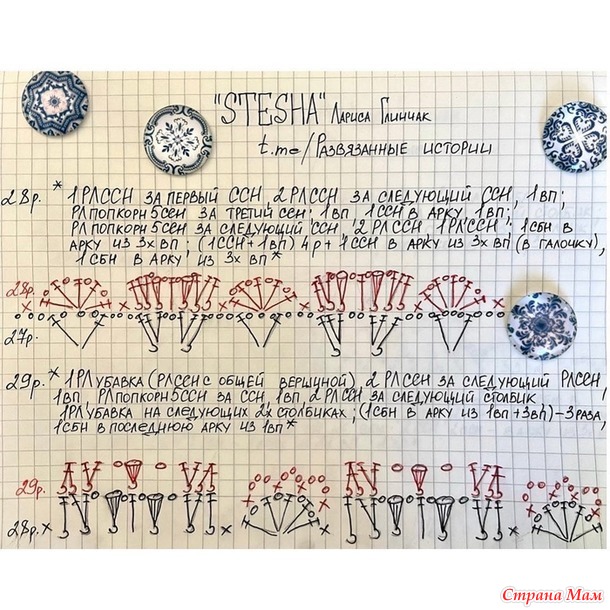 "STESHA" Лариса Глинчак
t.me/Развязанные истории
28р. * 1РЛССН за первый ССН, 2РЛССН за следующий ССН, 1вп;
РЛпопкорн5ссн за третий ссн; 1вп 1ССН в арку, 1вп;
РЛпопкорн5ссн за следующий ссн, 2РЛССН 1РЛССН; 1сбн в
арку из 3х вп; (1ССН+1вп) 4р+1ССН в арку из 3х вп (в галочку),
1сбн в арку из 3х вп *
28р.
27р.
29р. * 1РЛубавка (РЛССН с общей вершиной), 2РЛССН за следующий РЛССН,
1вп, РЛпопкорн5ССН за ССН, 1вп, 2РЛССН за следующий столбик
1РЛубавка на следующих 2х столбиках; (1сбн в арку из 1вп+3вп)-3раза,
1сбн в последнюю арку из 1вп*
29р.
28р.
Страна Мам